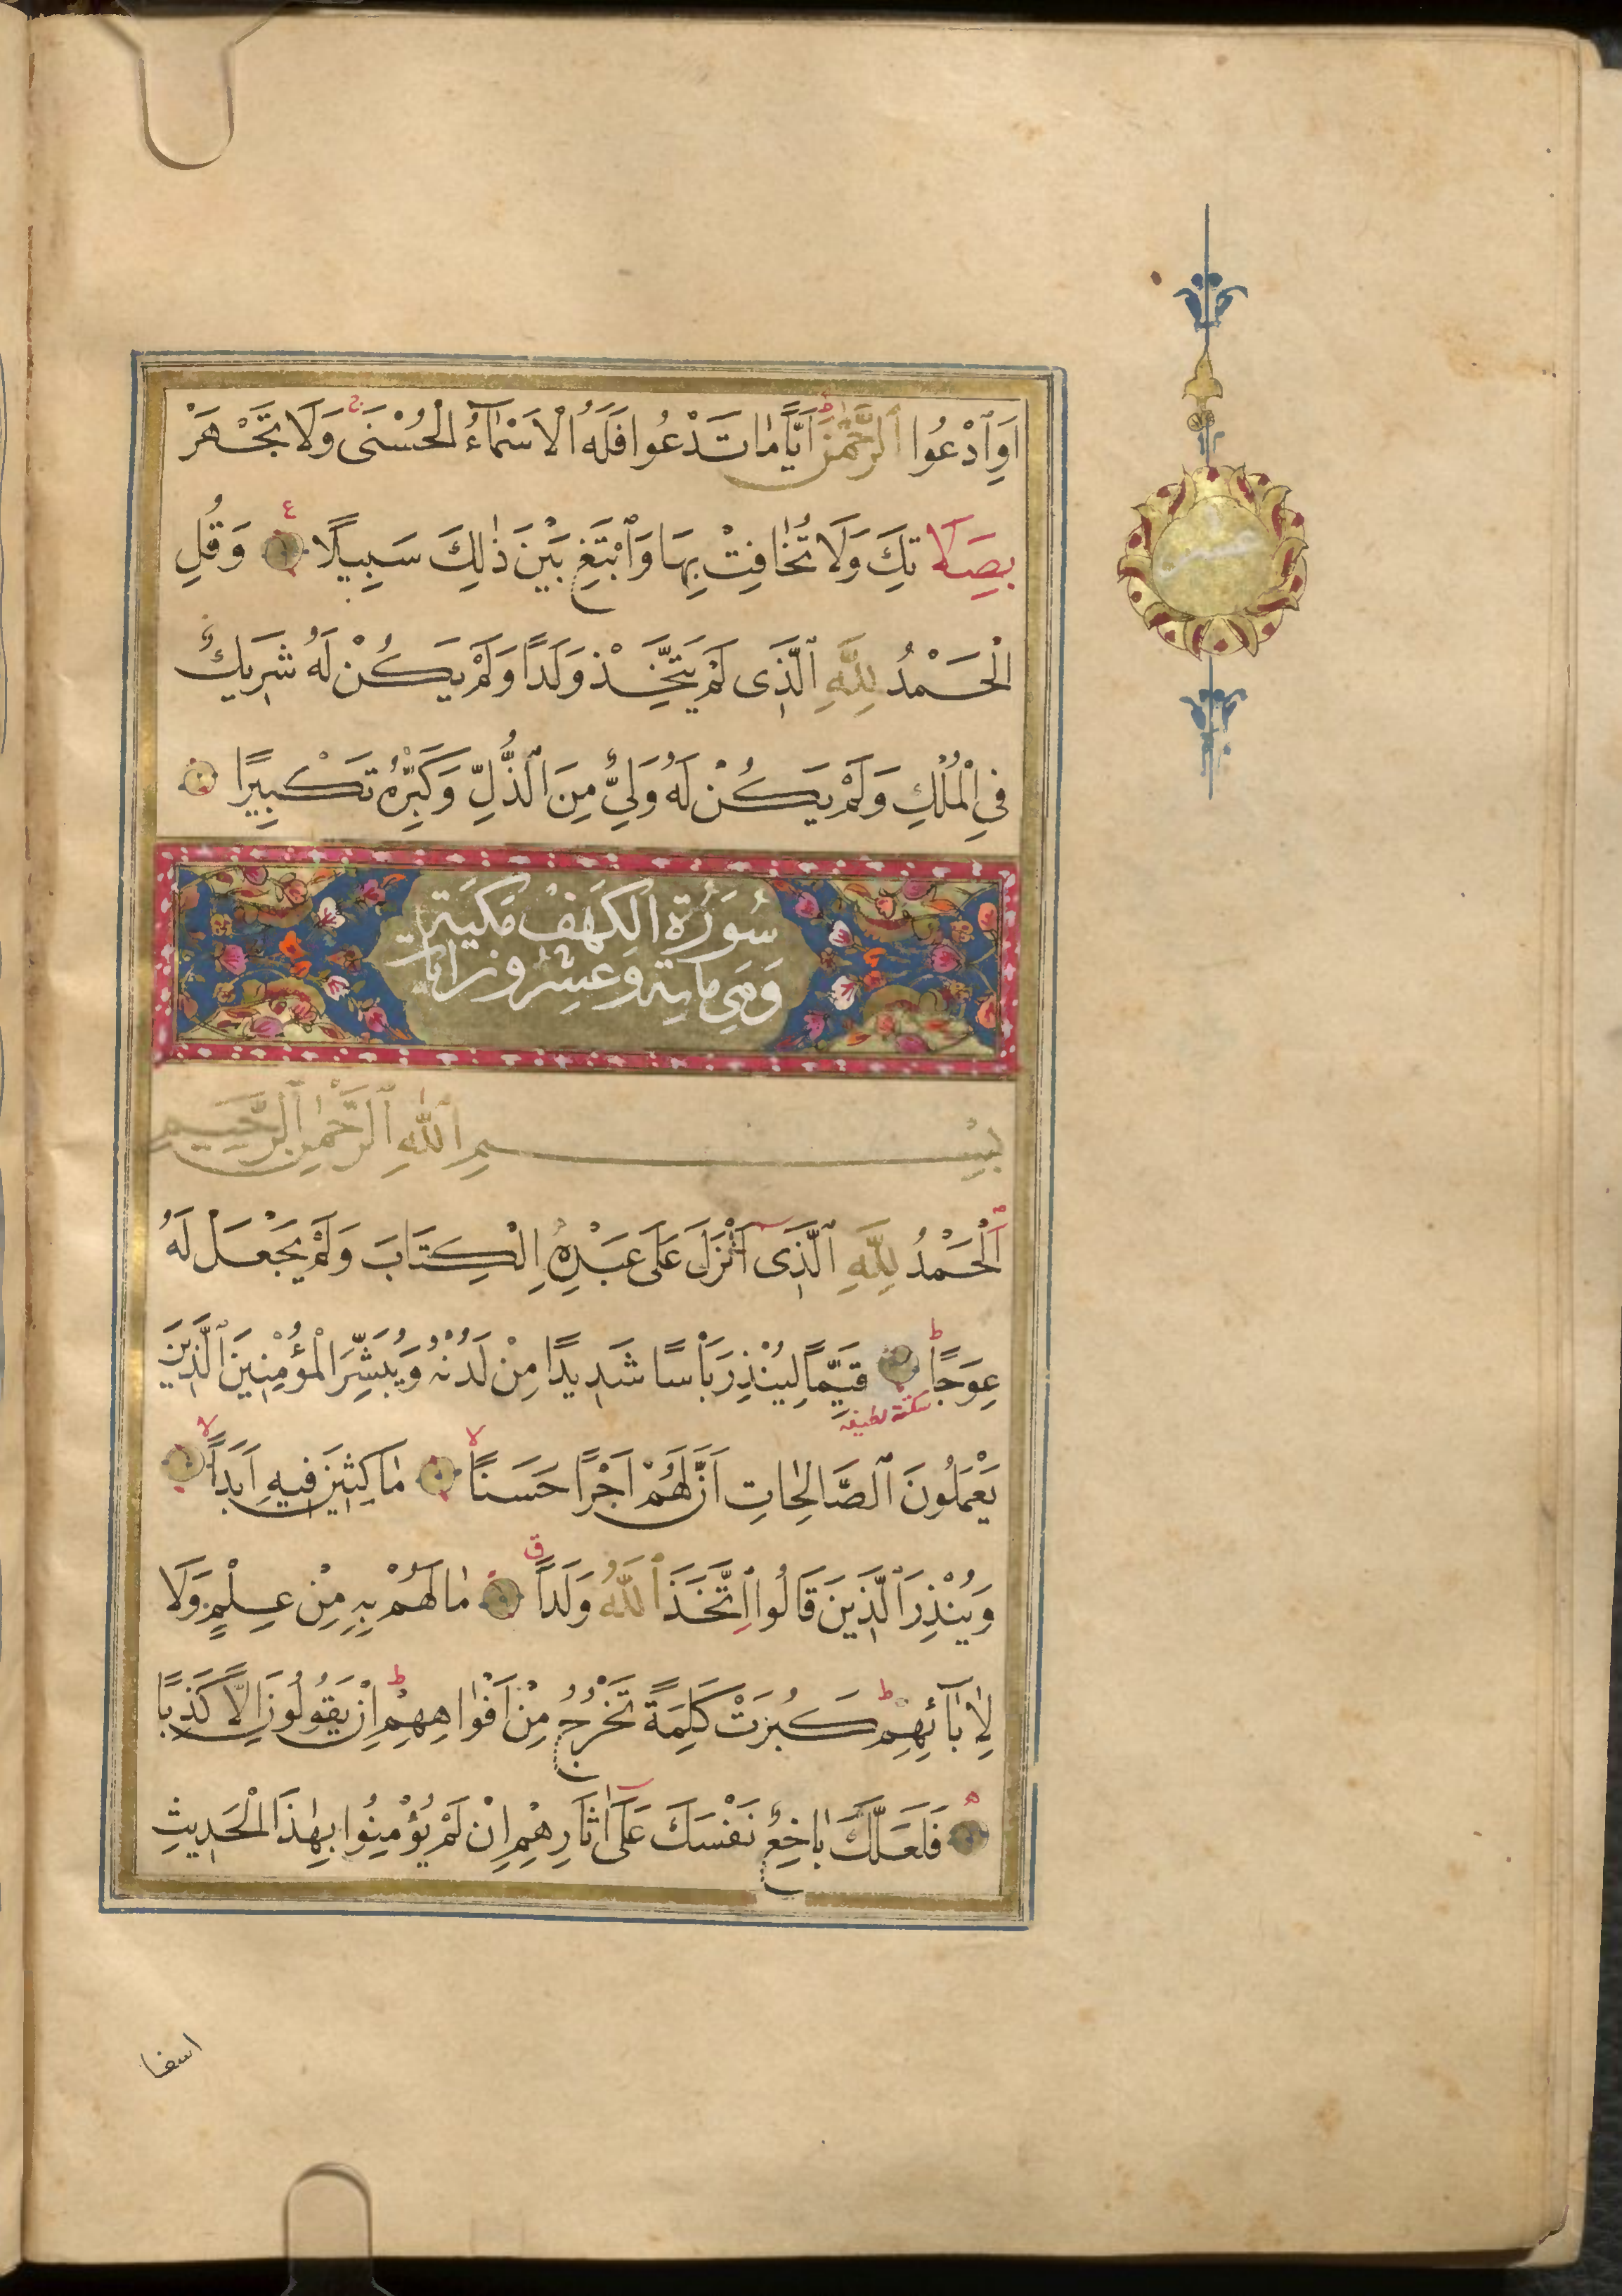 اَوِ ٱدْعُوا ٱلرَّحْمٰنَ اَيًّا مٰا تَدْعُوا فَلَهُ الْاَسْمٰٓاءُ الْحُسْنَى وَلَا تَجْهَرْ
بِصَلَا تِكَ وَلَا تُخٰافِتْ بِهَا وَٱبْتَغِ بَيْنَ ذٰلِكَ سَبِيلًا وَقُلِ
الْحَمْدُ لِلّٰهِ ٱلَّذِى لَمْ يَتَّخِذْ وَلَدًا وَلَمْ يَكُنْ لَهُ شَرِيكٌ
فِى الْمُلْكِ وَلَمْ يَكُنْ لَهُ وَلِىٌّ مِنَ ٱلذُّلِّ وَكَبِّرْهُ تَكْبِيرًا
سُورَةُ الكَهَفْ مَكيَة
وَهِى مائة وَعشرون ايات
بِسْمِ ٱللّٰهِ ٱلرَّحْمٰنِ ٱلرَّحِيمِ
اَلْحَمْدُ لِلّٰهِ ٱلَّذِى اَنْزَلَ عَلَى عَبْدِهِ الْكِتَابَ وَلَمْ يَجْعَلْ لَهُ
عِوَجًا قَيِّمًا لِيُنْذِرَ بَأْسًا شَدِيدًا مِنْ لَدُنْهُ وَيُبَشِّرَ الْمُؤْمِنِينَ ٱلَّذِينَ
سكتة لطيفه
يَعْمَلُونَ ٱلصَّالِحٰاتِ اَنَّ لَهُمْ اَجْرًا حَسَنًا مٰاكِثِينَ فِيهِ اَبَدًا
وَيُنْذِرَ ٱلَّذِينَ قَالُوا اتَّخَذَ ٱللّٰهُ وَلَدًا مٰا لَهُمْ بِهِ مِنْ عِلْمٍ وَلَا
لِاٰبَآئِهِمْ كَبُرَتْ كَلِمَةً تَخْرُجُ مِنْ اَفْوٰاهِهِمْ اِنْ يَقُولُونَ اِلَّا كَذِبًا
فَلَعَلَّكَ بٰاخِعٌ نَفْسَكَ عَلَى اٰثَارِهِمْ اِنْ لَمْ يُؤْمِنُوا بِهٰذَا الْحَدِيثِ
اسفا